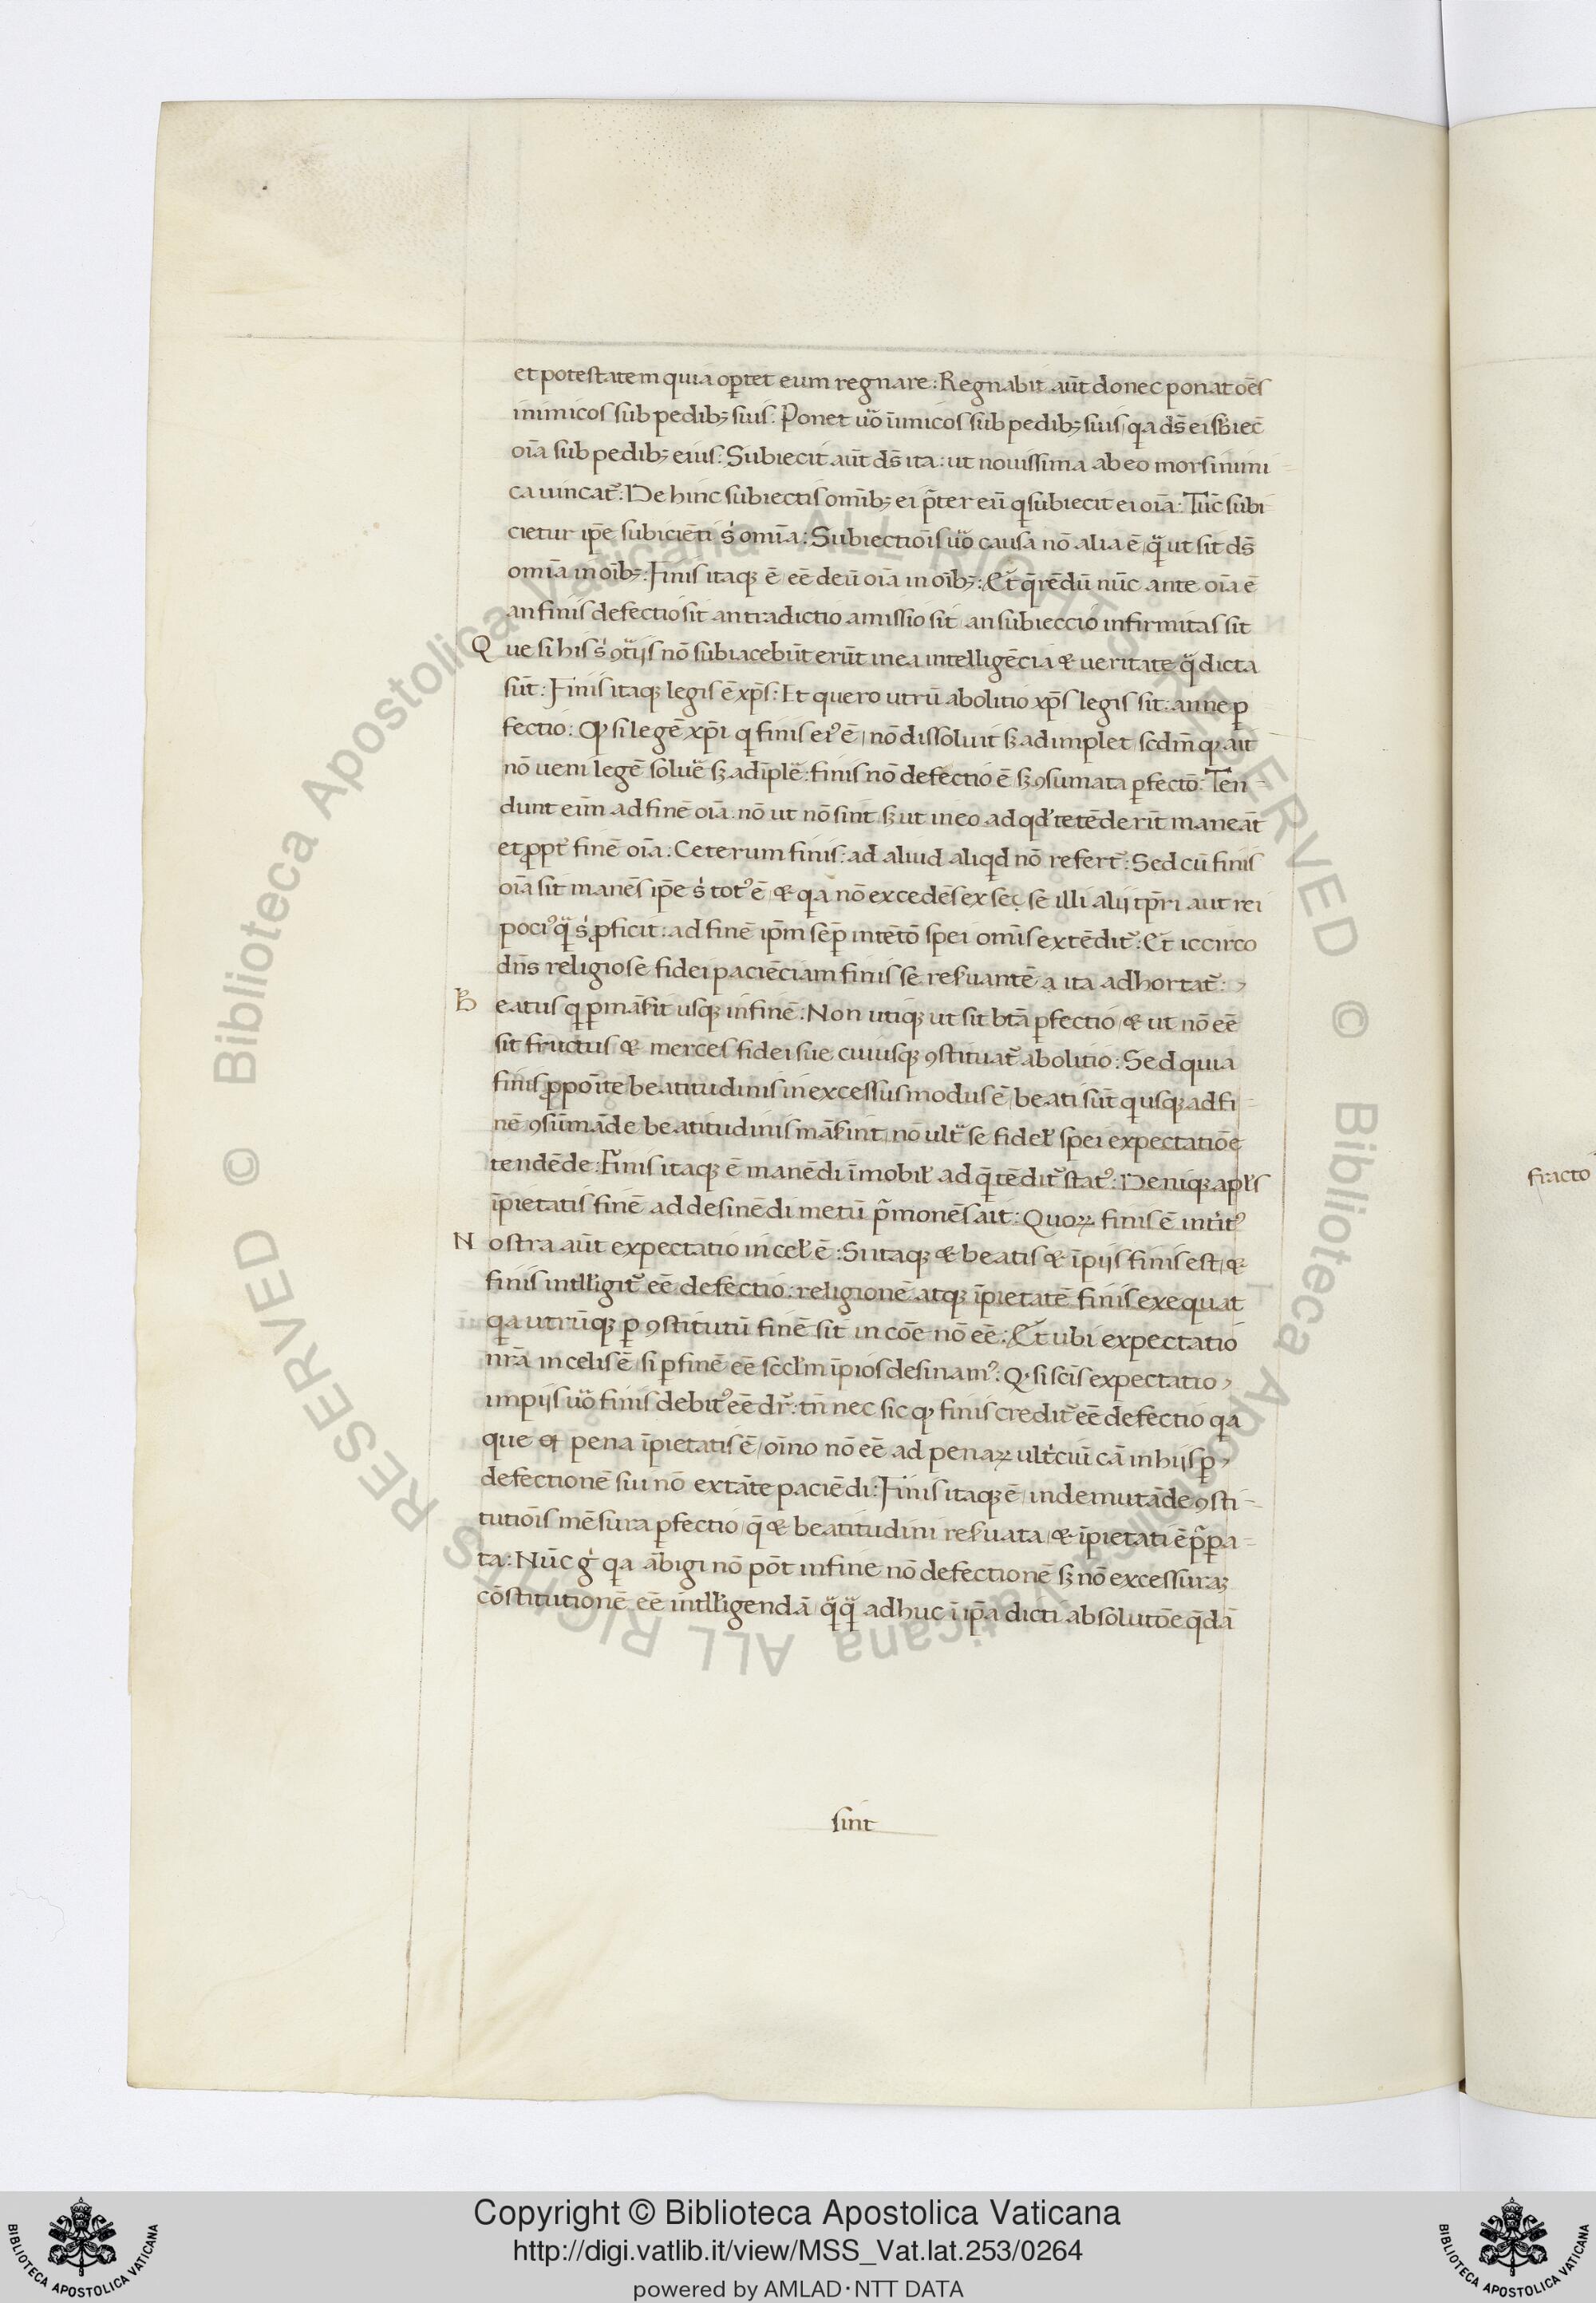 et potestatem quia op̱tet eum regnare : Regnabit aūt donec ponat oēs
inimicos sub pedibꝫ suis : Ponet uo̊ inimicos sub pedibꝫ suis / qa ds̄ ei sb̄iec̄
oīa sub pedibꝫ eius : Subiecit aūt ds̄ ita : ut nouissima ab eo mors inimi-
ca uincat᷑ : De hinc subiectis omībꝫ ei p̄ter eū q subiecit ei oīa : Tūc subi
cietur ip̄e subiciēti s᷑ omīa : Subiectiōis uo̊ causa nō alia ē / qͣ ut sit ds̄
omīa in oībꝫ : Finis itaqꝫ ē eē deū oīa in oībꝫ : Et q̄rēdū nūc ante oīa ē
an finis defectio sit an tradictio amissio sit an subieccio infirmitas sit
Que si his s᷑ ꝯtͥijs nō subiacebūt erūt in ea intelligēcia & veritate qͣ dicta
sūt : Finis itaqꝫ legis ē xp̄s : Et quero utrū abolitio xp̄s legis sit : an ne ꝑ
fectio : Qꝫ si legē xp̄i q finis eiꝰ ē / nō dissoluit sꝫ adimplet / scdm̄ qꝫ ait
nō ueni legē solue᷑ sꝫ adīple᷑ : finis nō defectio ē sꝫ ꝯsumata ꝑfectō : Ten-
dunt eīm ad finē oīa nō ut nō sint sꝫ ut in eo ad qd̛ tetēderīt maneāt
et ꝓpt᷑ finē oīa : Ceterum finis : ad aliud aliqd nō refert᷑ : Sed cū finis
oīa sit manēs ip̄e s᷑ totꝰ ē / & qa nō excedēs ex se se illi alij tp̄ri aut rei
pociꝰ qͣ s᷑ ꝓficit : ad finē ip̄m sep̄ intētō spei omīs extēdit᷑ : Et iccirco
dn̄s religiose fidei paciēciam finis se reẜuantē a ita adhortat᷑ :
Beatus q ꝑmāẜit usqꝫ in finē : Non utiqꝫ ut sit bt̄a ꝑfectio / & ut nō eē
sit fructus & merces fidei sue cuiusqꝫ ꝯstituat᷑ abolitio : Sed quia
finis ꝓpōite beatitudinis inexcessus modus ē / beati sūt q usqꝫ ad fi-
nē ꝯsūmāde beatitudinis māẜint / nō ultͣ se fidel̛ spei expectatiōe
tendēde : Finis itaqꝫ ē manēdi īmobil̛ ad q̄ tēdit᷑ statꝰ : Deniqꝫ apl̄s
īpietatis finē ad desinēdi metū p̄monēs ait : Quoꝝ finis ē int᷑itꝰ
Nostra aūt expectatio in cel̛ ē : Si itaqꝫ & beatis & īpijs finis est / &
finis intlligit᷑ eē defectio : religionē atqꝫ īpietatē finis exequat
qa utrūqꝫ ꝑ ꝯstitutū finē sit in cōe nō eē : Et ubi expectatio
nr̄a in celis ē / si ꝑ finē eē scd̄m īpios desinamꝰ : Qꝫ si scīs expectatio
impijs uo̊ finis debitꝰ eē dr̄ : tn̄ nec sic qꝫ finis credit᷑ eē defectio qa
que et pena īpietatis ē / oīno nō eē ad penaꝝ ult᷑cui cā in hijs ꝑ
defectionē sui nō extāte paciēdi : Finis itaqꝫ ē / indemutāde ꝯsti-
tutiōis mēsura ꝑfectio / q̄ & beatitudini reẜuata / & īpietati ē p̄ꝑa-
ta : Nūc g᷑ qa ābigi nō pōt in fine nō defectionē sꝫ nō excessuraꝫ
cōstitutionē eē intlligendā / qͣqͣ adhuc ī ip̄a dicti absolutōe q̄dā
sint
fracto
Copyright © Biblioteca Apostolica Vaticana
http://digi.vatlib.it/view/MSS_Vat.lat.253/0264
powered by AMLAD·NTT DATA
BIBLIOTECA APOSTOLICA VATICANA
BIBLIOTECA APOSTOLICA VATICANA
© Biblioteca Apostolica Vaticana ALL RIGHTS RESERVED © Biblioteca Apostolica Vaticana ALL RIGHTS RESERVED